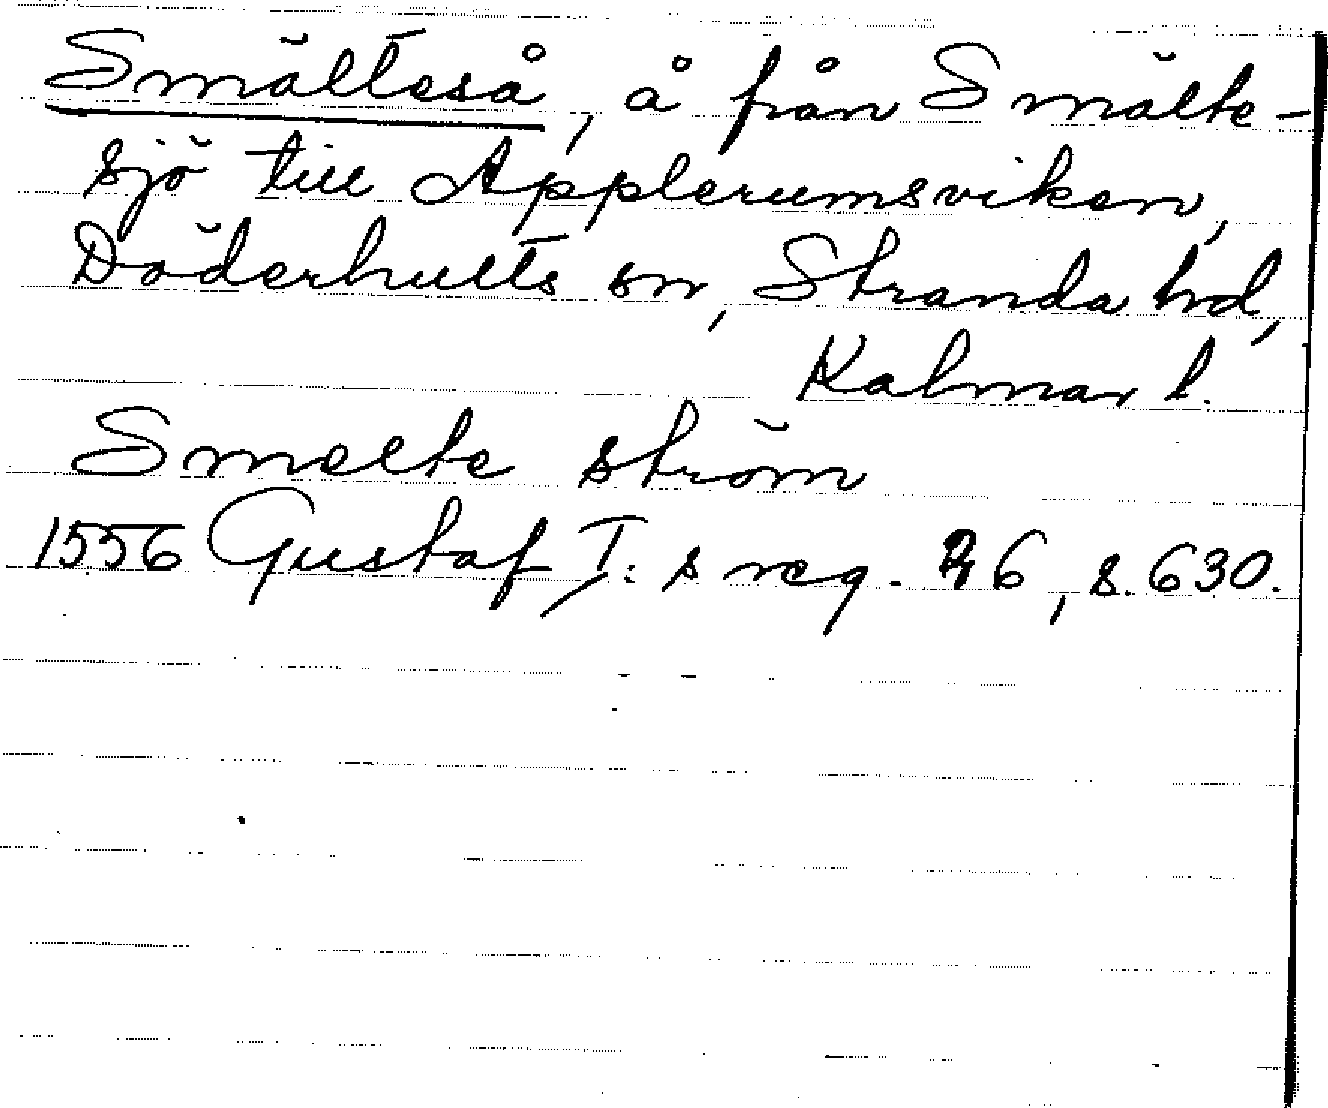 Smälteså, å från Smälte-
sjö till Applerumsviken,
Döderhults sn, Stranda hd,
Kalmar l.
Smelte ström
1556 Gustaf I:s reg. 26, s. 630.